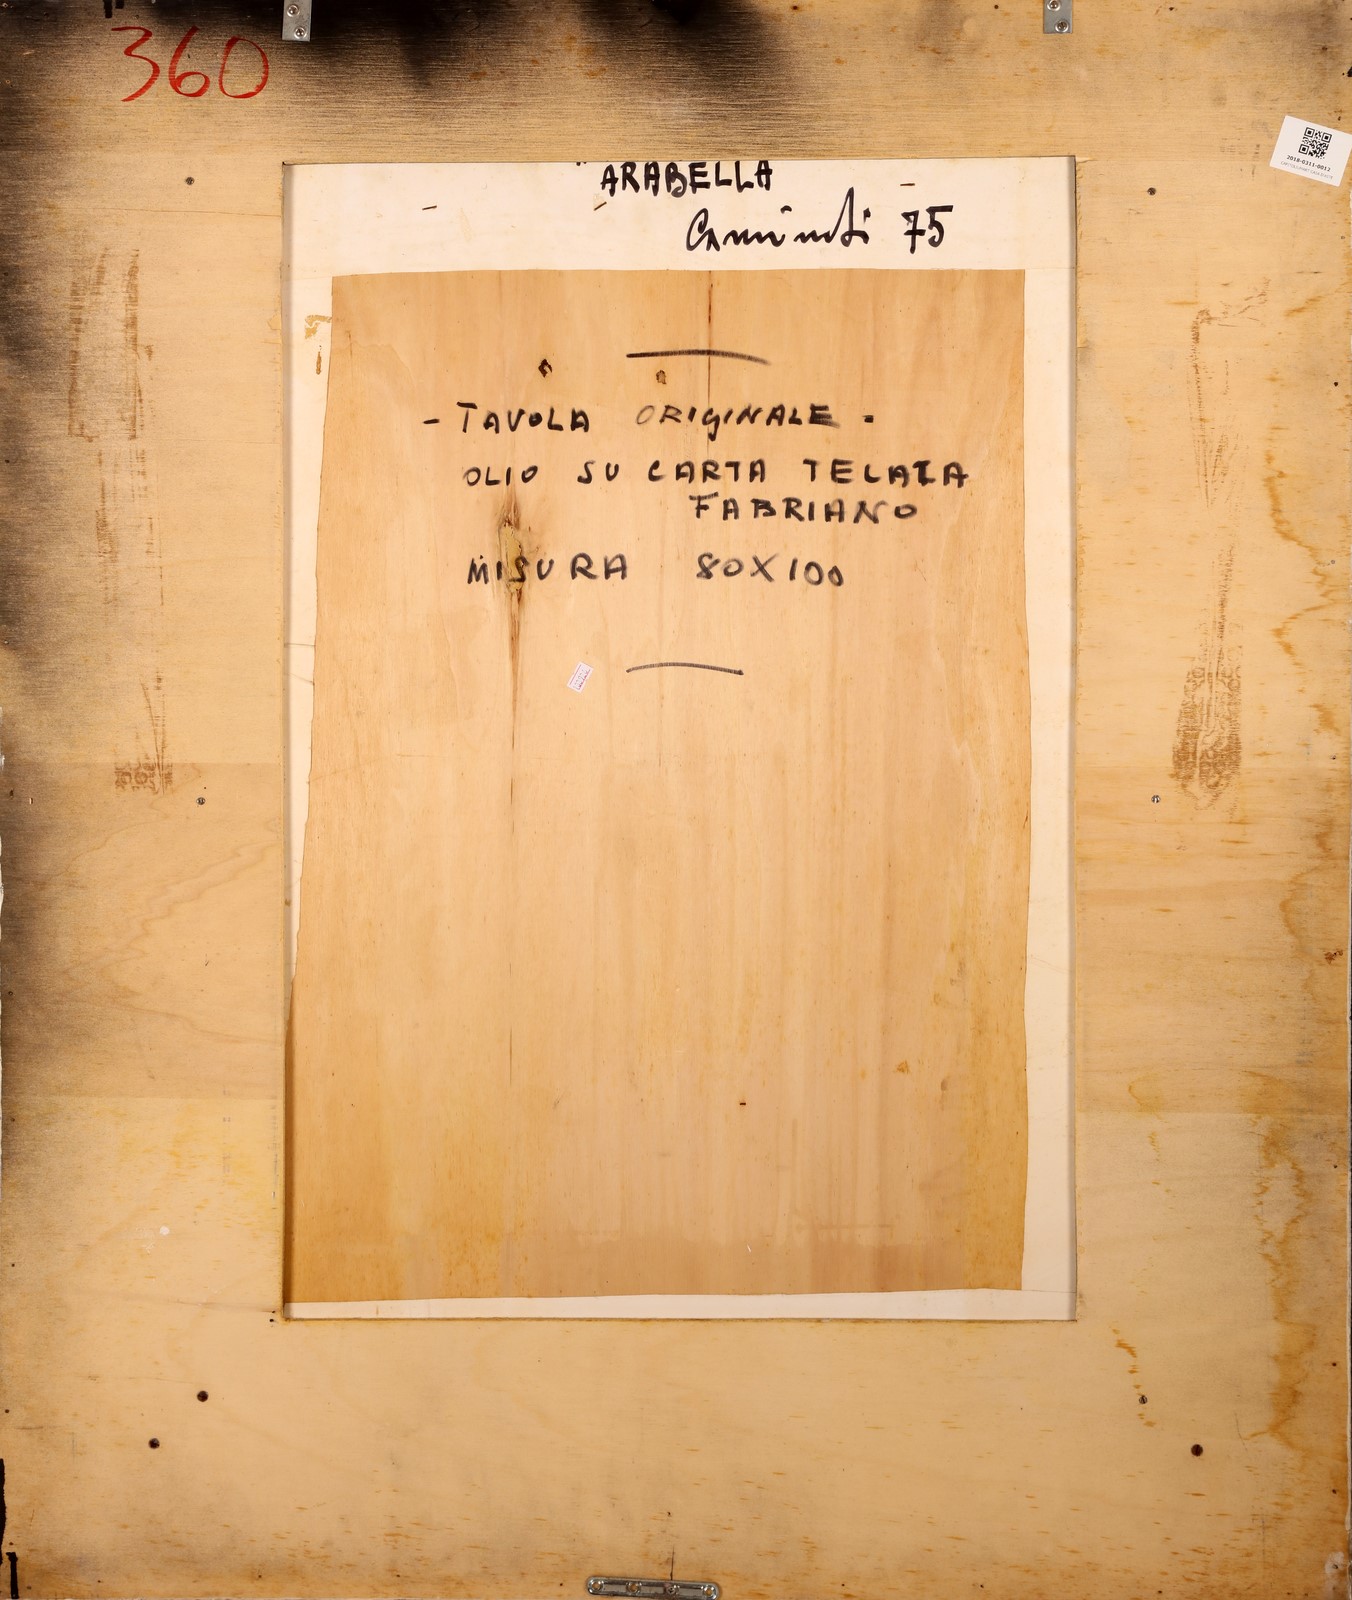 360
2018-0311-0012
"ARABELLA
75
- TAVOLA ORIGINALE -
OLIO SU CARTA TELATA
FABRIANO
MISURA 80X100